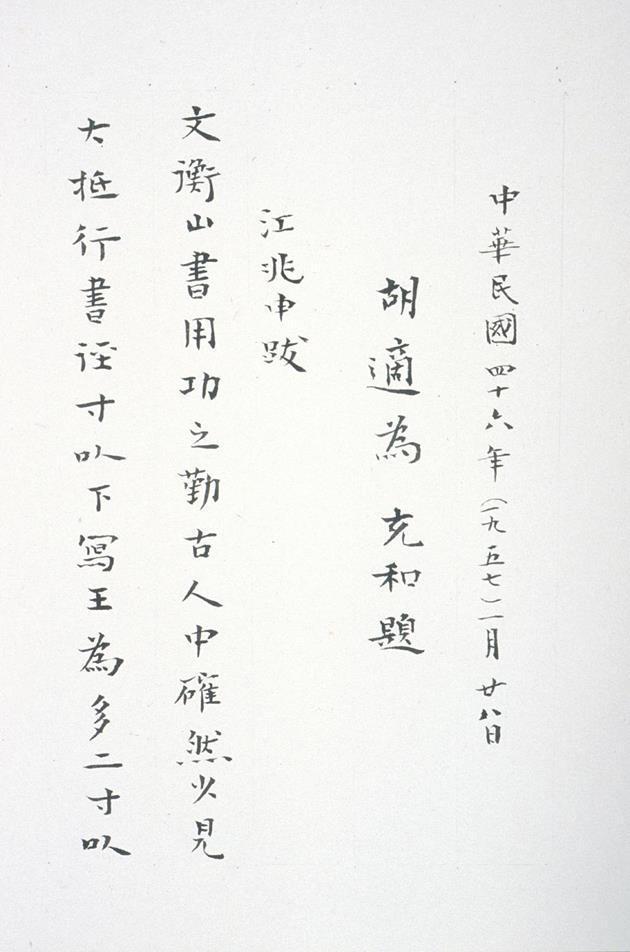 中華民國四十六年（一九五七）一月廿八日
胡適為 充和題
江兆申跋
文衡山書用功之勤古人中確然少見
大抵行書徑寸㕥下寫王為多二寸㕥